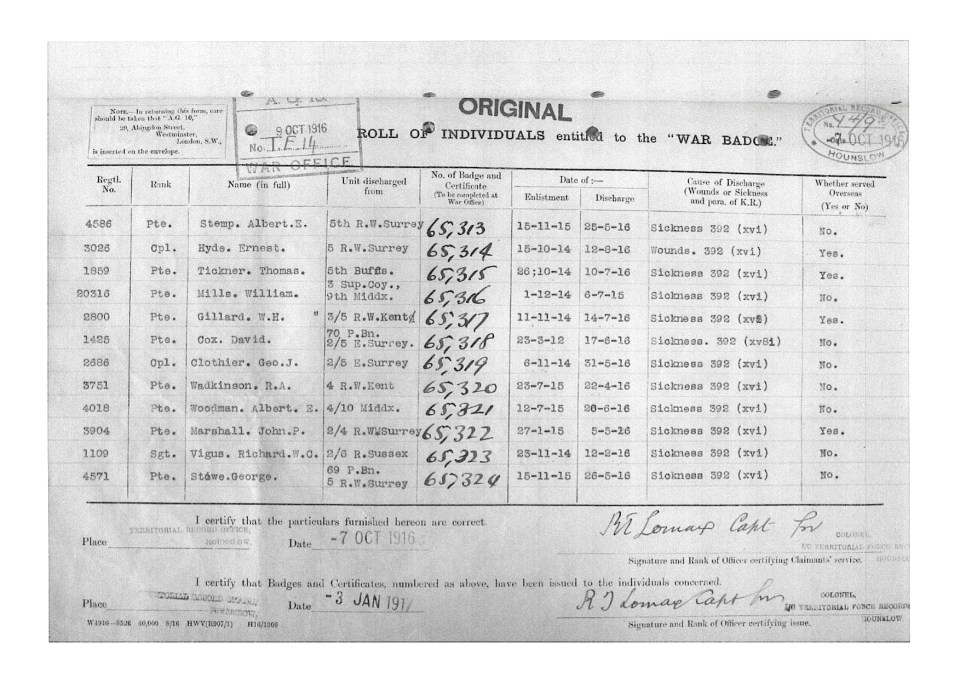 NOTE.—In returning this form, care
should be taken that "A.G. 10,"
29, Abingdon Street,
Westminster,
London, S.W.,
is inserted on the envelope.
A. G. 10.
9 OCT 1916
No. I.E.14
WAR OFFICE
ORIGINAL
ROLL OF INDIVIDUALS entitled to the "WAR BADGE."
TERRITORIAL RECORD
-7 OCT 1916
HOUNSLOW
Regtl. No. Rank Name (in full) Unit discharged from No. of Badge and Certificate (To be completed at War Office) Date of :— Enlistment Discharge Cause of Discharge (Wounds or Sickness and para. of K.R.) Whether served Overseas (Yes or No)
4586 Pte. Stemp. Albert.E. 5th R.W.Surrey 65,313 15-11-15 25-5-16 Sickness 392 (xvi) No.
3026 Cpl. Hyde. Ernest. 5 R.W.Surrey 65,314 15-10-14 12-8-16 Wounds. 392 (xvi) Yes.
1859 Pte. Tickner. Thomas. 5th Buffs. 65,315 26;10-14 10-7-16 Sickness 392 (xvi) Yes.
20316 Pte. Mills. William. 3 Sup.Coy., 9th Middx. 65,316 1-12-14 6-7-15 Sickness 392 (xvi) No.
2800 Pte. Gillard. W.H. " 3/5 R.W.Kent 65,317 11-11-14 14-7-16 Sickness 392 Yes.
1425 Pte. Cox. David. 70 P.Bn. 2/5 E.Surrey. 65,318 23-3-12 17-6-16 Sickness. 392 No.
2686 Cpl. Clothier. Geo.J. 2/5 E.Surrey 65,319 6-11-14 31-5-16 Sickness 392 (xvi) No.
3751 Pte. Wadkinson. R.A. 4 R.W.Kent 65,320 23-7-15 22-4-16 Sickness 392 (xvi) No.
4018 Pte. Woodman. Albert. E. 4/10 Middx. 65,321 12-7-15 26-6-16 Sickness 392 (xvi) No.
3904 Pte. Marshall. John.P. 2/4 R.W.Surrey 65,322 27-1-15 5-5-16 Sickness 392 (xvi) Yes.
1109 Sgt. Vigus. Richard.W.C. 2/6 R.Sussex 65,323 23-11-14 12-2-16 Sickness 392 (xvi) No.
4571 Pte. Stowe.George. 69 P.Bn. 5 R.W.Surrey 65,324 15-11-15 26-5-16 Sickness 392 (xvi) No.
I certify that the particulars furnished hereon are correct.
TERRITORIAL RECORD OFFICE,
Place HOUNSLOW. Date -7 OCT 1916
R T Lomax Capt for
COLONEL,
I/C TERRITORIAL FORCE
Signature and Rank of Officer certifying Claimants' service. HOUNSLOW
I certify that Badges and Certificates, numbered as above, have been issued to the individuals concerned.
TERRITORIAL RECORD OFFICE,
Place HOUNSLOW. Date -3 JAN 1917
R T Lomax Capt for
COLONEL,
I/C TERRITORIAL FORCE RECORDS
HOUNSLOW.
Signature and Rank of Officer certifying issue.
W4916—8526 40,000 8/16 HWV(R907/1) H16/1306